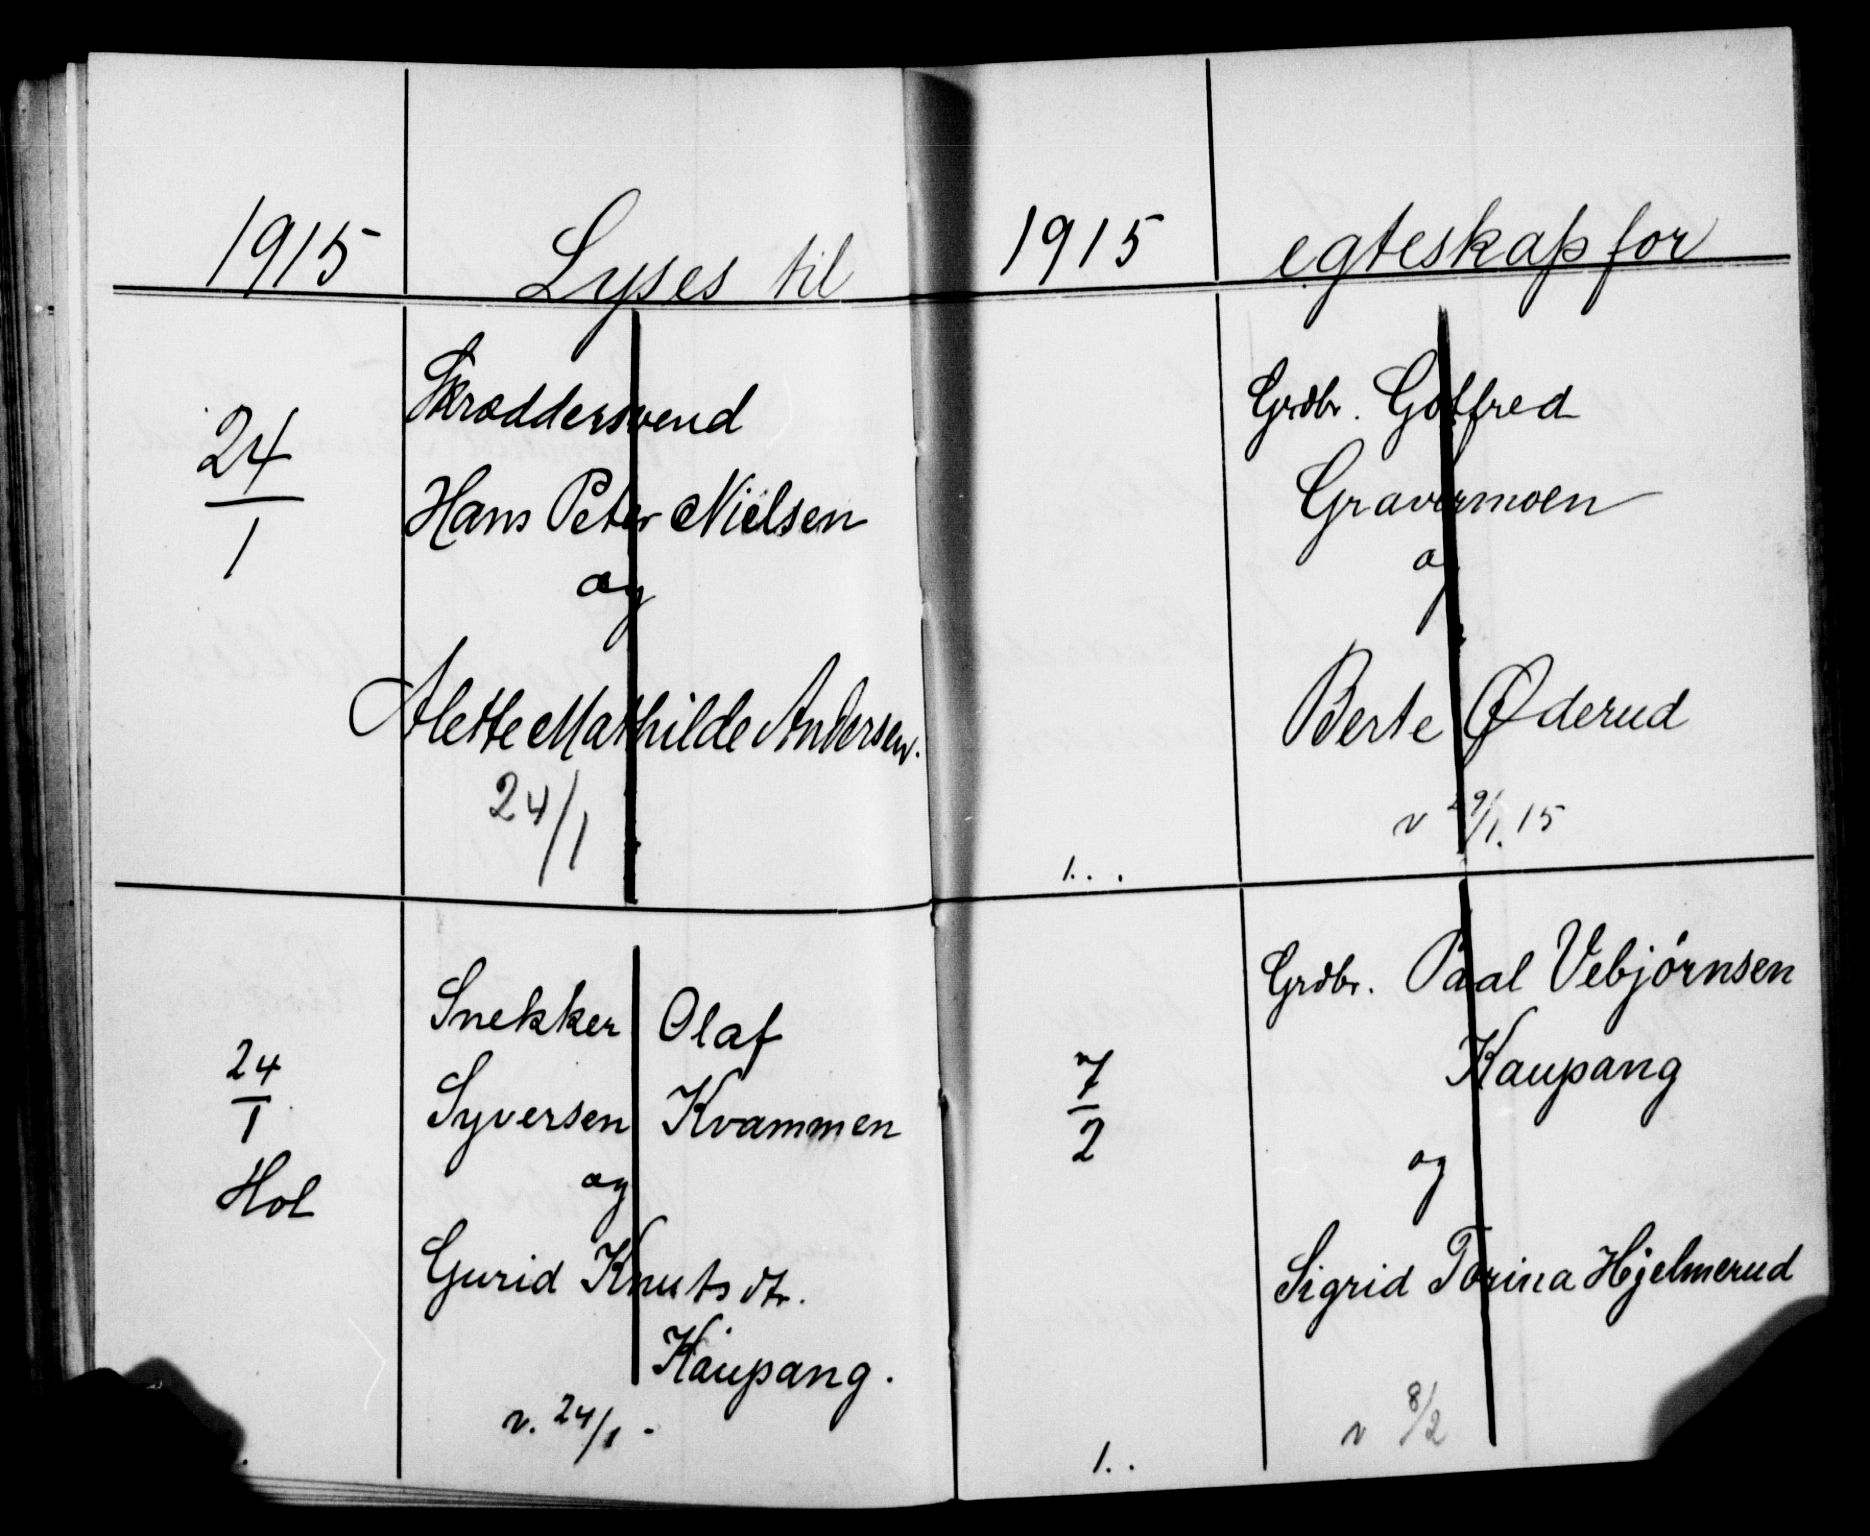 1915
Lyses til
24
1
Skræddersvend
Hans Peter Nielsen
og
Alette Mathilde Andersen.
24/1
24
1
Hol
Snekker Olaf
Syversen Kvammen
og
Gurid Knutsdtr.
Kaupang.
v. 24/1 -
1915
egteskap for
Grdbr. Gotfred
Gravermoen
og
Berte Øderud
v 29/1. 15
1. . .
7
2
Grdbr. Paal Vebjørnsen
Kaupang
og
Sigrid Torina Hjelmerud
v 8/2
1. .